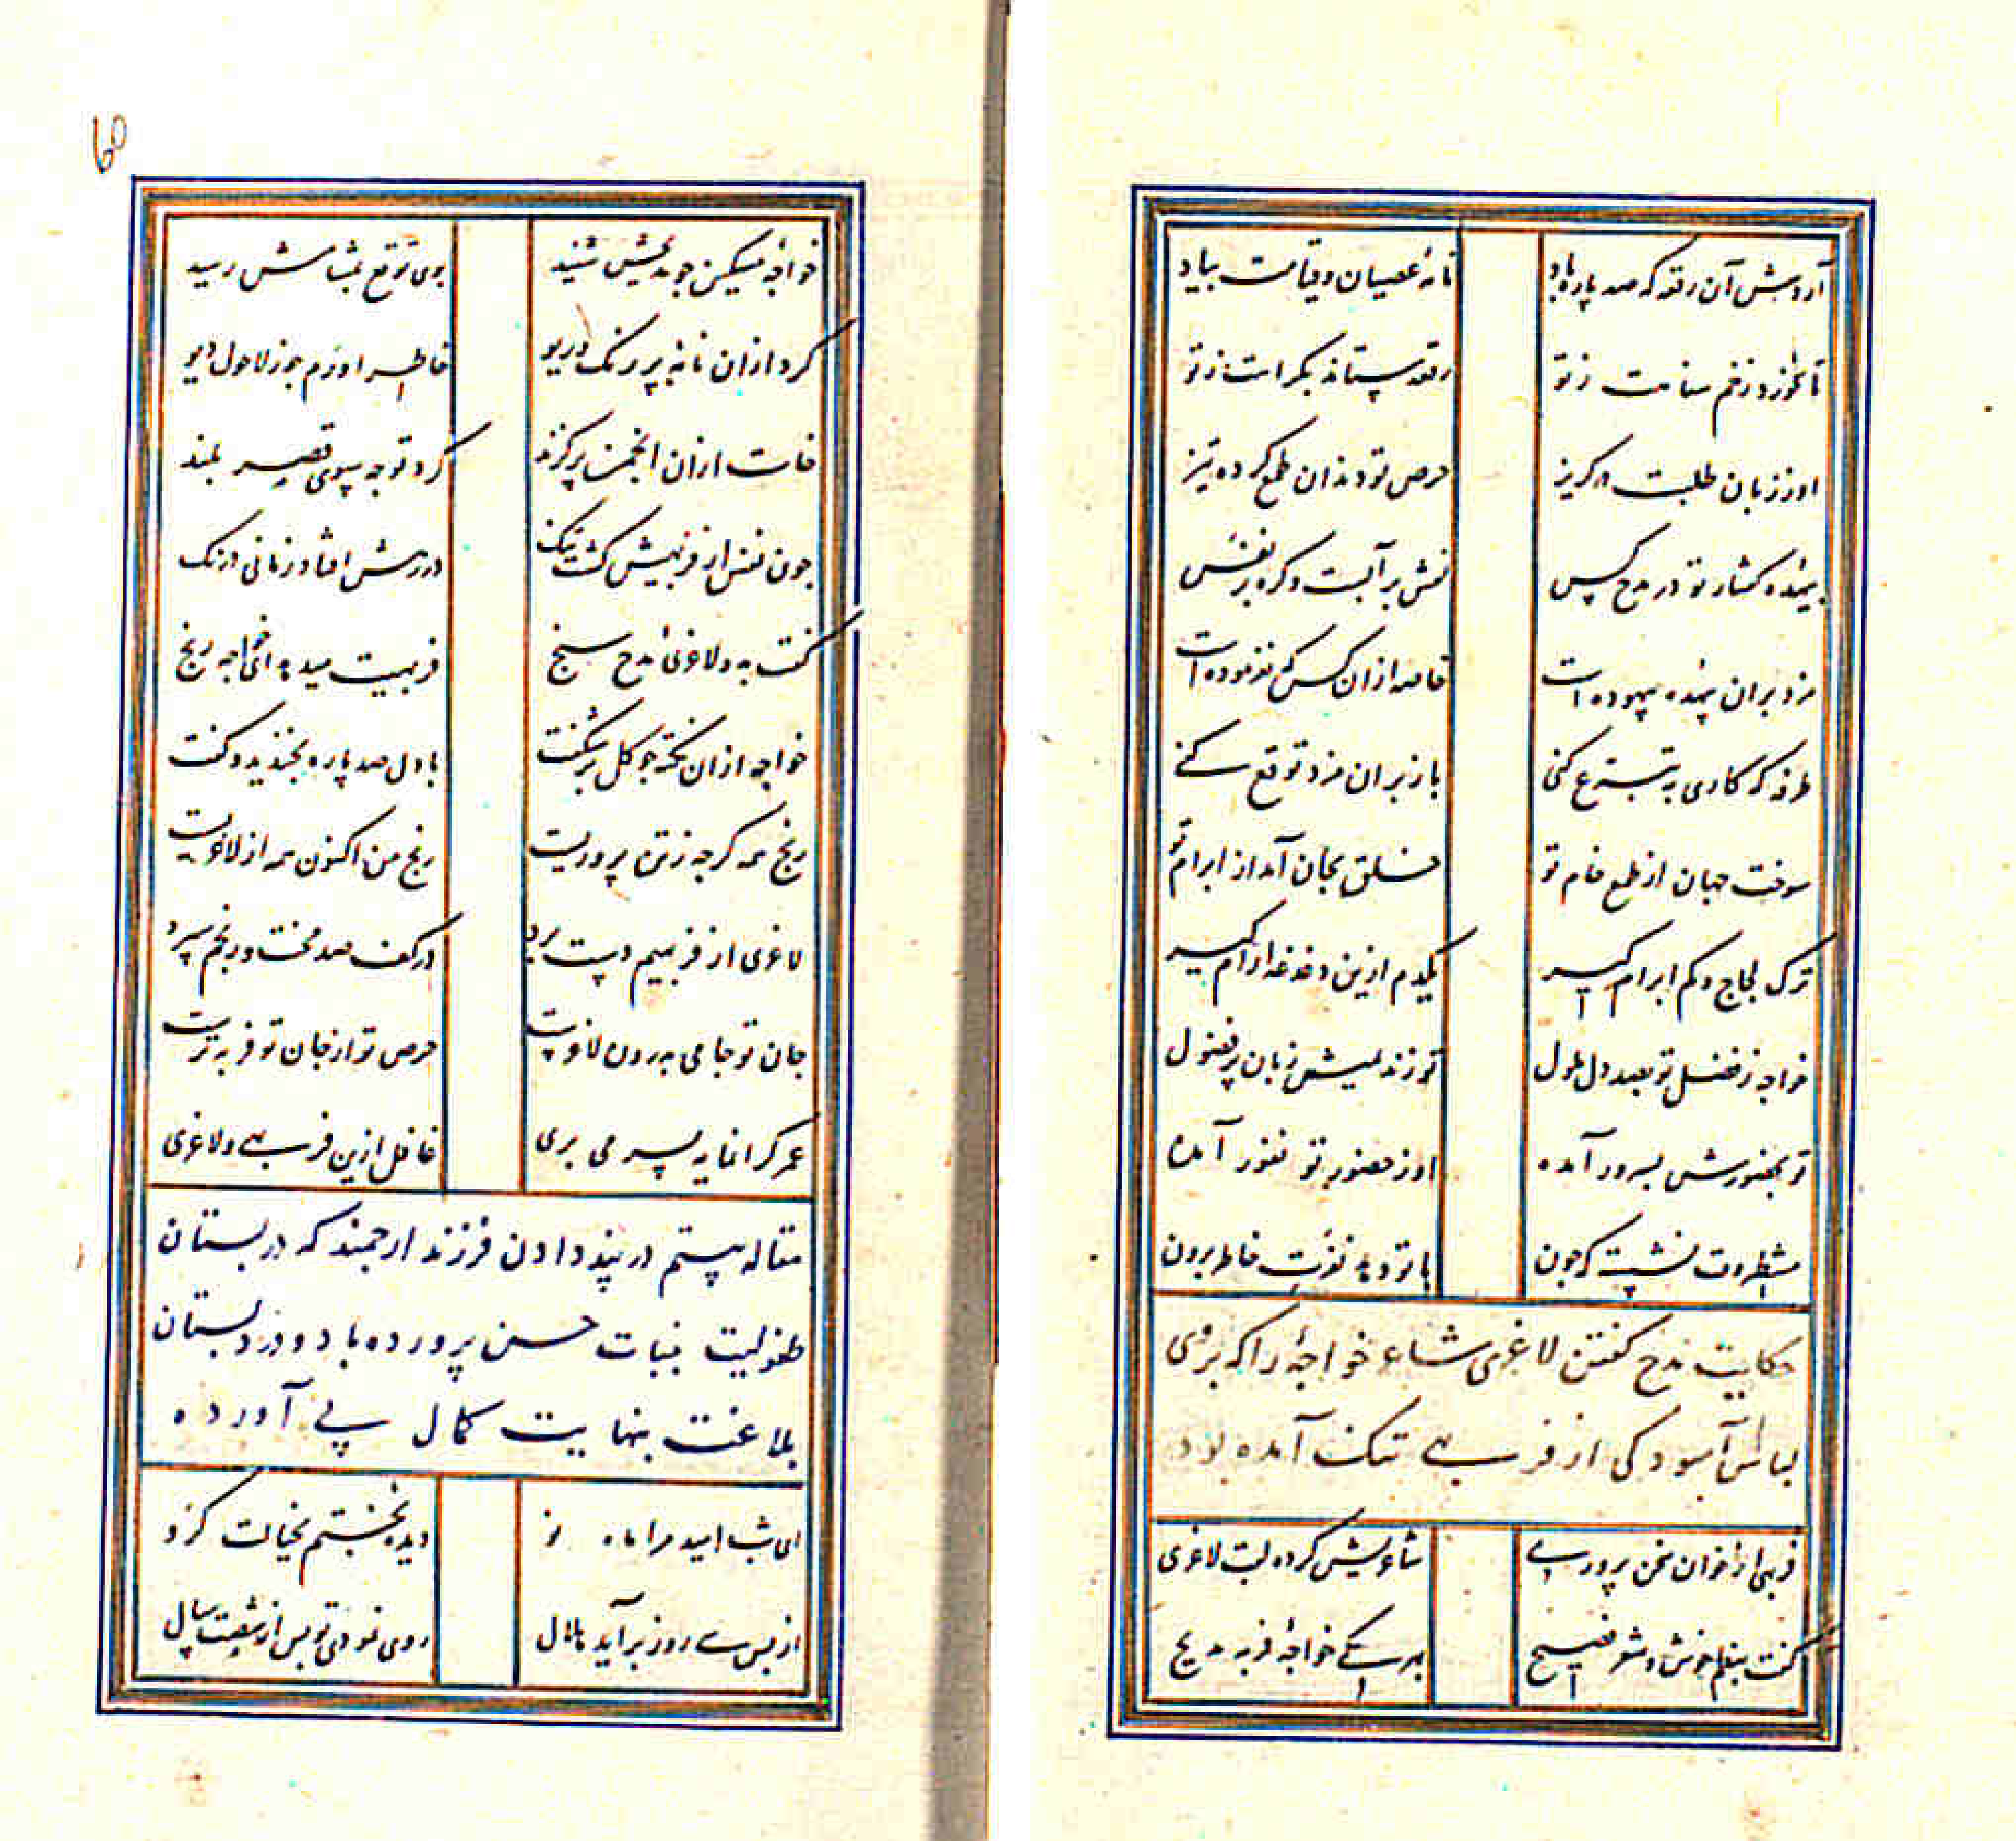 آردبش آن رقعه که صد پاره باد نامهٔ عصیان و قیامت بیاد
تا نخورد زخم سنانت ز تو رقعه ستاند بکرامت ز تو
او ز زبان طلبت در گریز حرص تو دندان طمع کرده تیز
بیهده گفتار تو در مدح کس نقش بر آبست و گره بر نفس
مزد بر آن بیهده بیهوده است خاصه از آن کس که نفرموده است
طرفه که کاری به تبرع کنی باز بران مزد توقع کنی
سوخت جهان از طمع خام تو خلق بجان آمد از ابرام تو
ترک لجاج و کم ابرام گیر یکدم ازین دغدغه آرام گیر
خواجه ز فضل تو بصد دل ملول تو زنیش زبان پر فضول
تو بحضورش بسرور آمده او ز حضور تو نفور آمده
منتظر وقت نشسته که چون با تو دهد نفرت خاطر برون
حکایت مدح گفتن لاغری شاعر خواجهٔ را که بروی
لباس آسودگی از فربهی تنگ آمده بود
فربهی از خوان سخن پروری شاعریش کرده لقب لاغری
گفت بنظم خوش و شعر فصیح بهر یکی خواجهٔ فربه مدیح
60
خواجه مسکین چو مدیحش شنید بوی توقع بمشامش رسید
کرد از آن نامهٔ پر رنگ و ریو خاطر او رم چو ز لاحول دیو
خاست از آن انجمن پر گزند کرد توجه بسوی قصر بلند
چون نفس از فربهیش گشت تنگ در رهش افتاد زمانی درنگ
گفت بدو لاغری مدح سنج فربهیت میدهد ای خواجه رنج
خواجه از آن نکته چو گل برشکفت با دل صد پاره بخندید و گفت
رنج همه گر چه ز تن پروریست رنج من اکنون همه از لاغریست
لاغری از فربهیم دست برد در کف صد محنت و رنجم سپرد
جان تو جامی بدرون لاغرست حرص تو از جان تو فربه ترست
عمر گرانمایه بسر می بری غافل ازین فربهی و لاغری
مقاله بیستم در پند دادن فرزند ارجمند که در بستان
طفولیت بنبات حسن پرورده باد و در دبستان
بلاغت بنهایت کمال پی آورده
ای شب امید مرا ماه نو دیده بختم بخیالت گرو
از پس سی روز برآید هلال روی نمودی تو پس از شصت سال